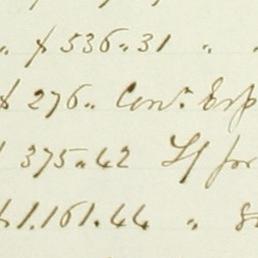 " $ 536.31 " "
$ 276.. Cont. Exp
$ 375.42 Lf for
$1.161.44 "